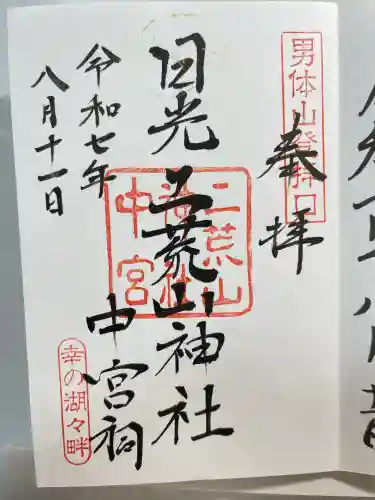 男体山登拝口
奉拝
日光二荒山神社
中宮祠
二荒山
神社
中宮
令和七年
八月十一日
幸の湖々畔